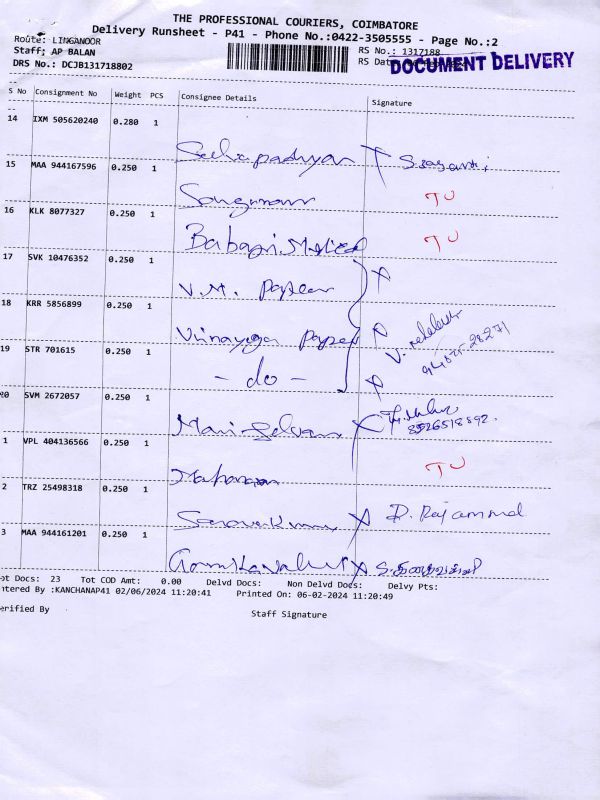 THE PROFESSIONAL COURIERS, COIMBATORE
Delivery Runsheet - P41 - Phone No.:0422-3505555 - Page No.:2
Route: LINGANOOR
RS No.: 1317188
Staff; AP BALAN
RS Date
DOCUMENT DELIVERY
DRS No.: DCJB131718802
S No Consignment No Weight PCS Consignee Details Signature
14 IXM 505620240 0.280 1
15 MAA 944167596 0.250 1
TU
16 KLK 8077327 0.250 1 Babagi Medical TU
17 SVK 10476352 0.250 1 V.M. Papers
18 KRR 5856899 0.250 1 Vinayaga Paper
19 STR 701615 0.250 1 - do -
94875-28271
20 SVM 2672057 0.250 1 Mariselvam
8526518892
1 VPL 404136566 0.250 1 TU
2 TRZ 25498318 0.250 1 Saravankumar D. Rajammal
3 MAA 944161201 0.250 1
ot Docs: 23 Tot COD Amt: 0.00 Delvd Docs: Non Delvd Docs: Delvy Pts:
ntered By :KANCHANAP41 02/06/2024 11:20:41 Printed On: 06-02-2024 11:20:49
erified By Staff Signature